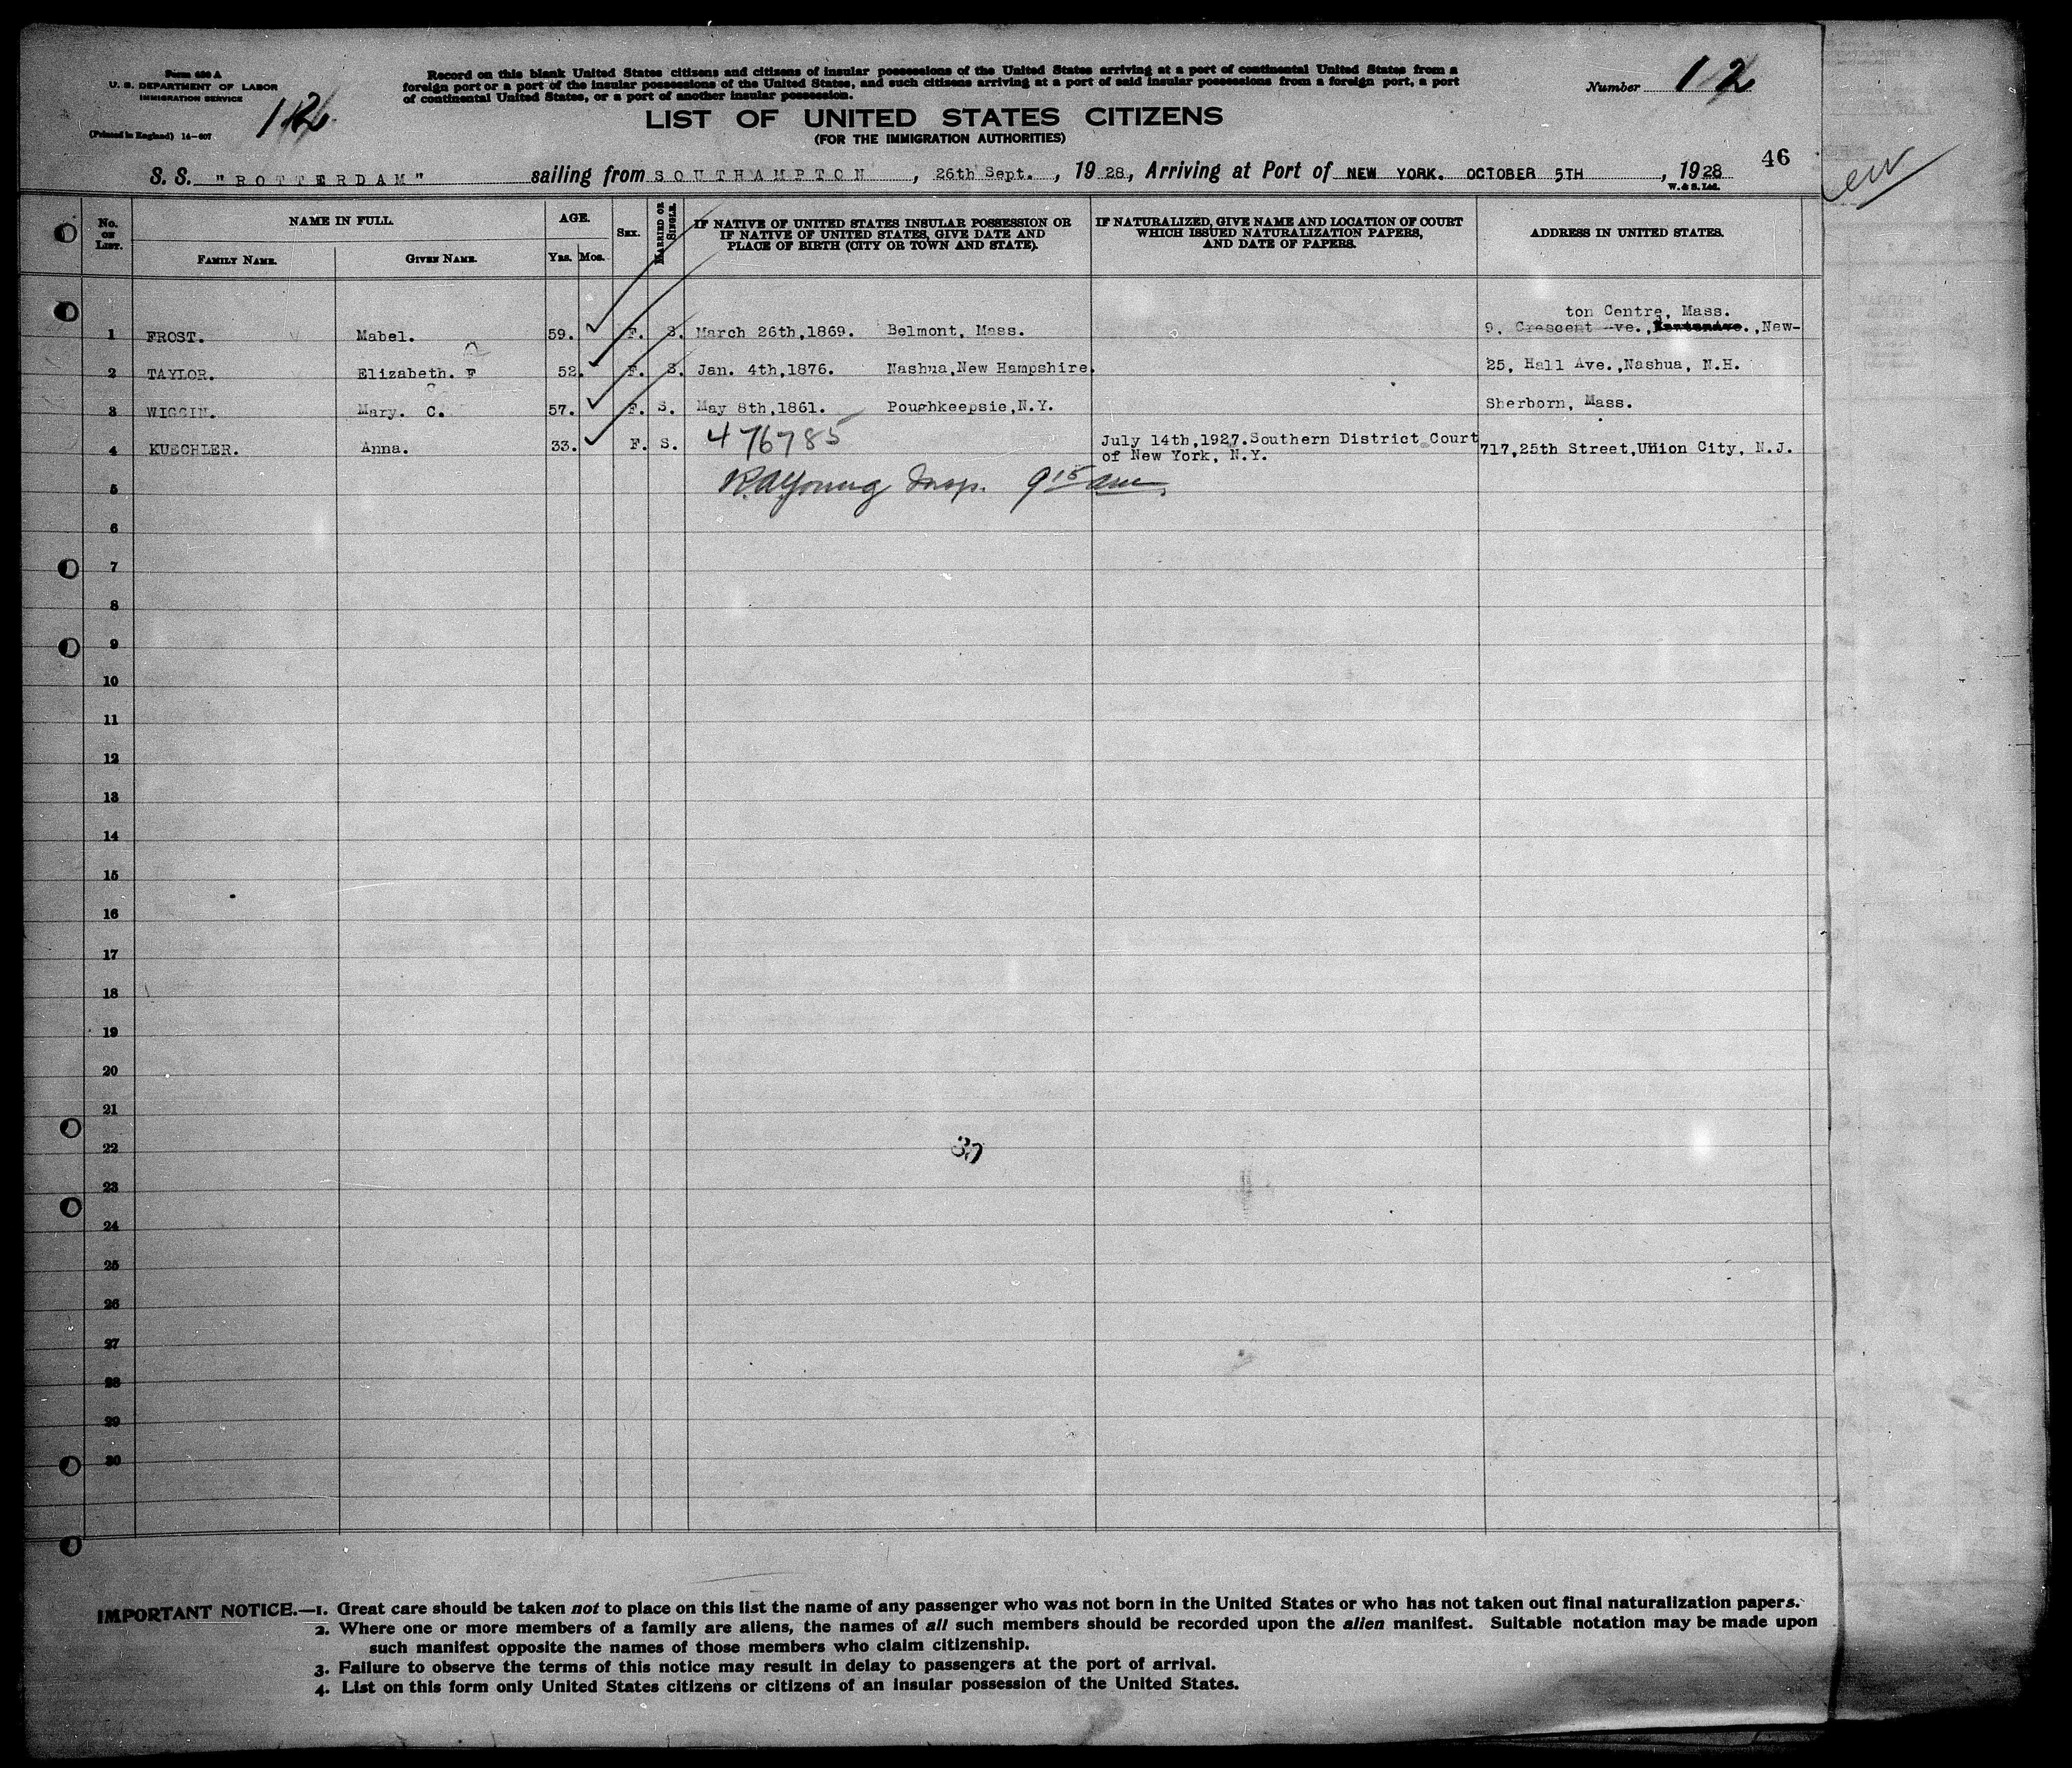 Form 630 A
U. S. DEPARTMENT OF LABOR
IMMIGRATION SERVICE
(Printed in England) 14-607
12
Record on this blank United States citizens and citizens of insular possessions of the United States arriving at a port of continental United States from a
foreign port or a port of the insular possessions of the United States, and such citizens arriving at a port of said insular possessions from a foreign port, a port
of continental United States, or a port of another insular possession.
Number 12
LIST OF UNITED STATES CITIZENS
(FOR THE IMMIGRATION AUTHORITIES)
46
S. S. "ROTTERDAM" sailing from SOUTHAMPTON, 26th Sept., 1928, Arriving at Port of NEW YORK. OCTOBER 5TH, 1928
W. & S. Ltd.
No. on List.
NAME IN FULL.
FAMILY NAME. GIVEN NAME.
AGE.
Yrs. Mos.
SEX.
MARRIED OR SINGLE.
IF NATIVE OF UNITED STATES INSULAR POSSESSION OR
IF NATIVE OF UNITED STATES, GIVE DATE AND
PLACE OF BIRTH (CITY OR TOWN AND STATE).
IF NATURALIZED, GIVE NAME AND LOCATION OF COURT
WHICH ISSUED NATURALIZATION PAPERS,
AND DATE OF PAPERS.
ADDRESS IN UNITED STATES.
ton Centre, Mass.
1 FROST. Mabel. 59. F. S. March 26th,1869. Belmont, Mass. 9, Crescent Ave., New-
2 TAYLOR. Elizabeth. F 52. F. S. Jan. 4th,1876. Nashua,New Hampshire. 25, Hall Ave.,Nashua, N.H.
3 WIGGIN. Mary. C. 57. F. S. May 8th,1861. Poughkeepsie,N.Y. Sherborn, Mass.
4 KUECHLER. Anna. 33. F. S. 476785 July 14th,1927.Southern District Court
of New York, N.Y. 717,25th Street,Union City, N.J.
5 R.A.Young Insp. 9 15 am
6
7
8
9
10
11
12
13
14
15
16
17
18
19
20
21
22
23
24
25
26
27
28
29
30
IMPORTANT NOTICE.—1. Great care should be taken not to place on this list the name of any passenger who was not born in the United States or who has not taken out final naturalization papers.
2. Where one or more members of a family are aliens, the names of all such members should be recorded upon the alien manifest. Suitable notation may be made upon
such manifest opposite the names of those members who claim citizenship.
3. Failure to observe the terms of this notice may result in delay to passengers at the port of arrival.
4. List on this form only United States citizens or citizens of an insular possession of the United States.